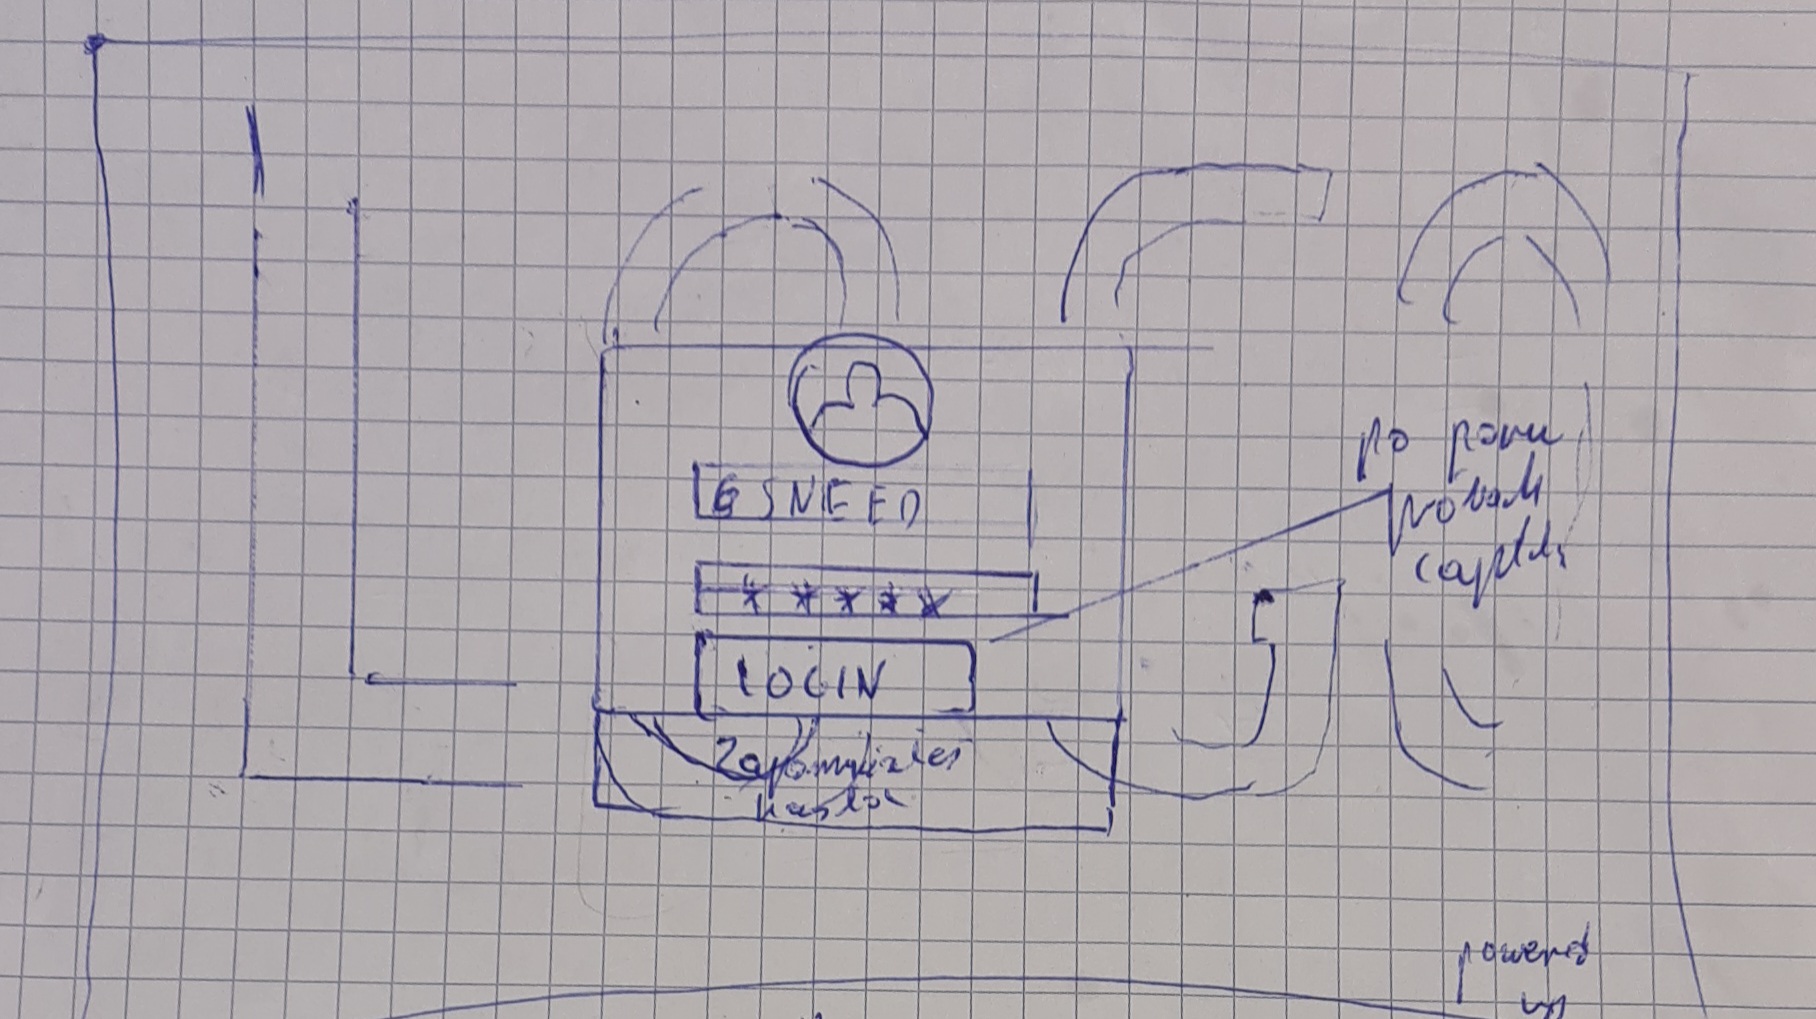 GSNEED
*****
LOGIN
Zapomniałeś
hasła
po paru
próbach
captcha
powered